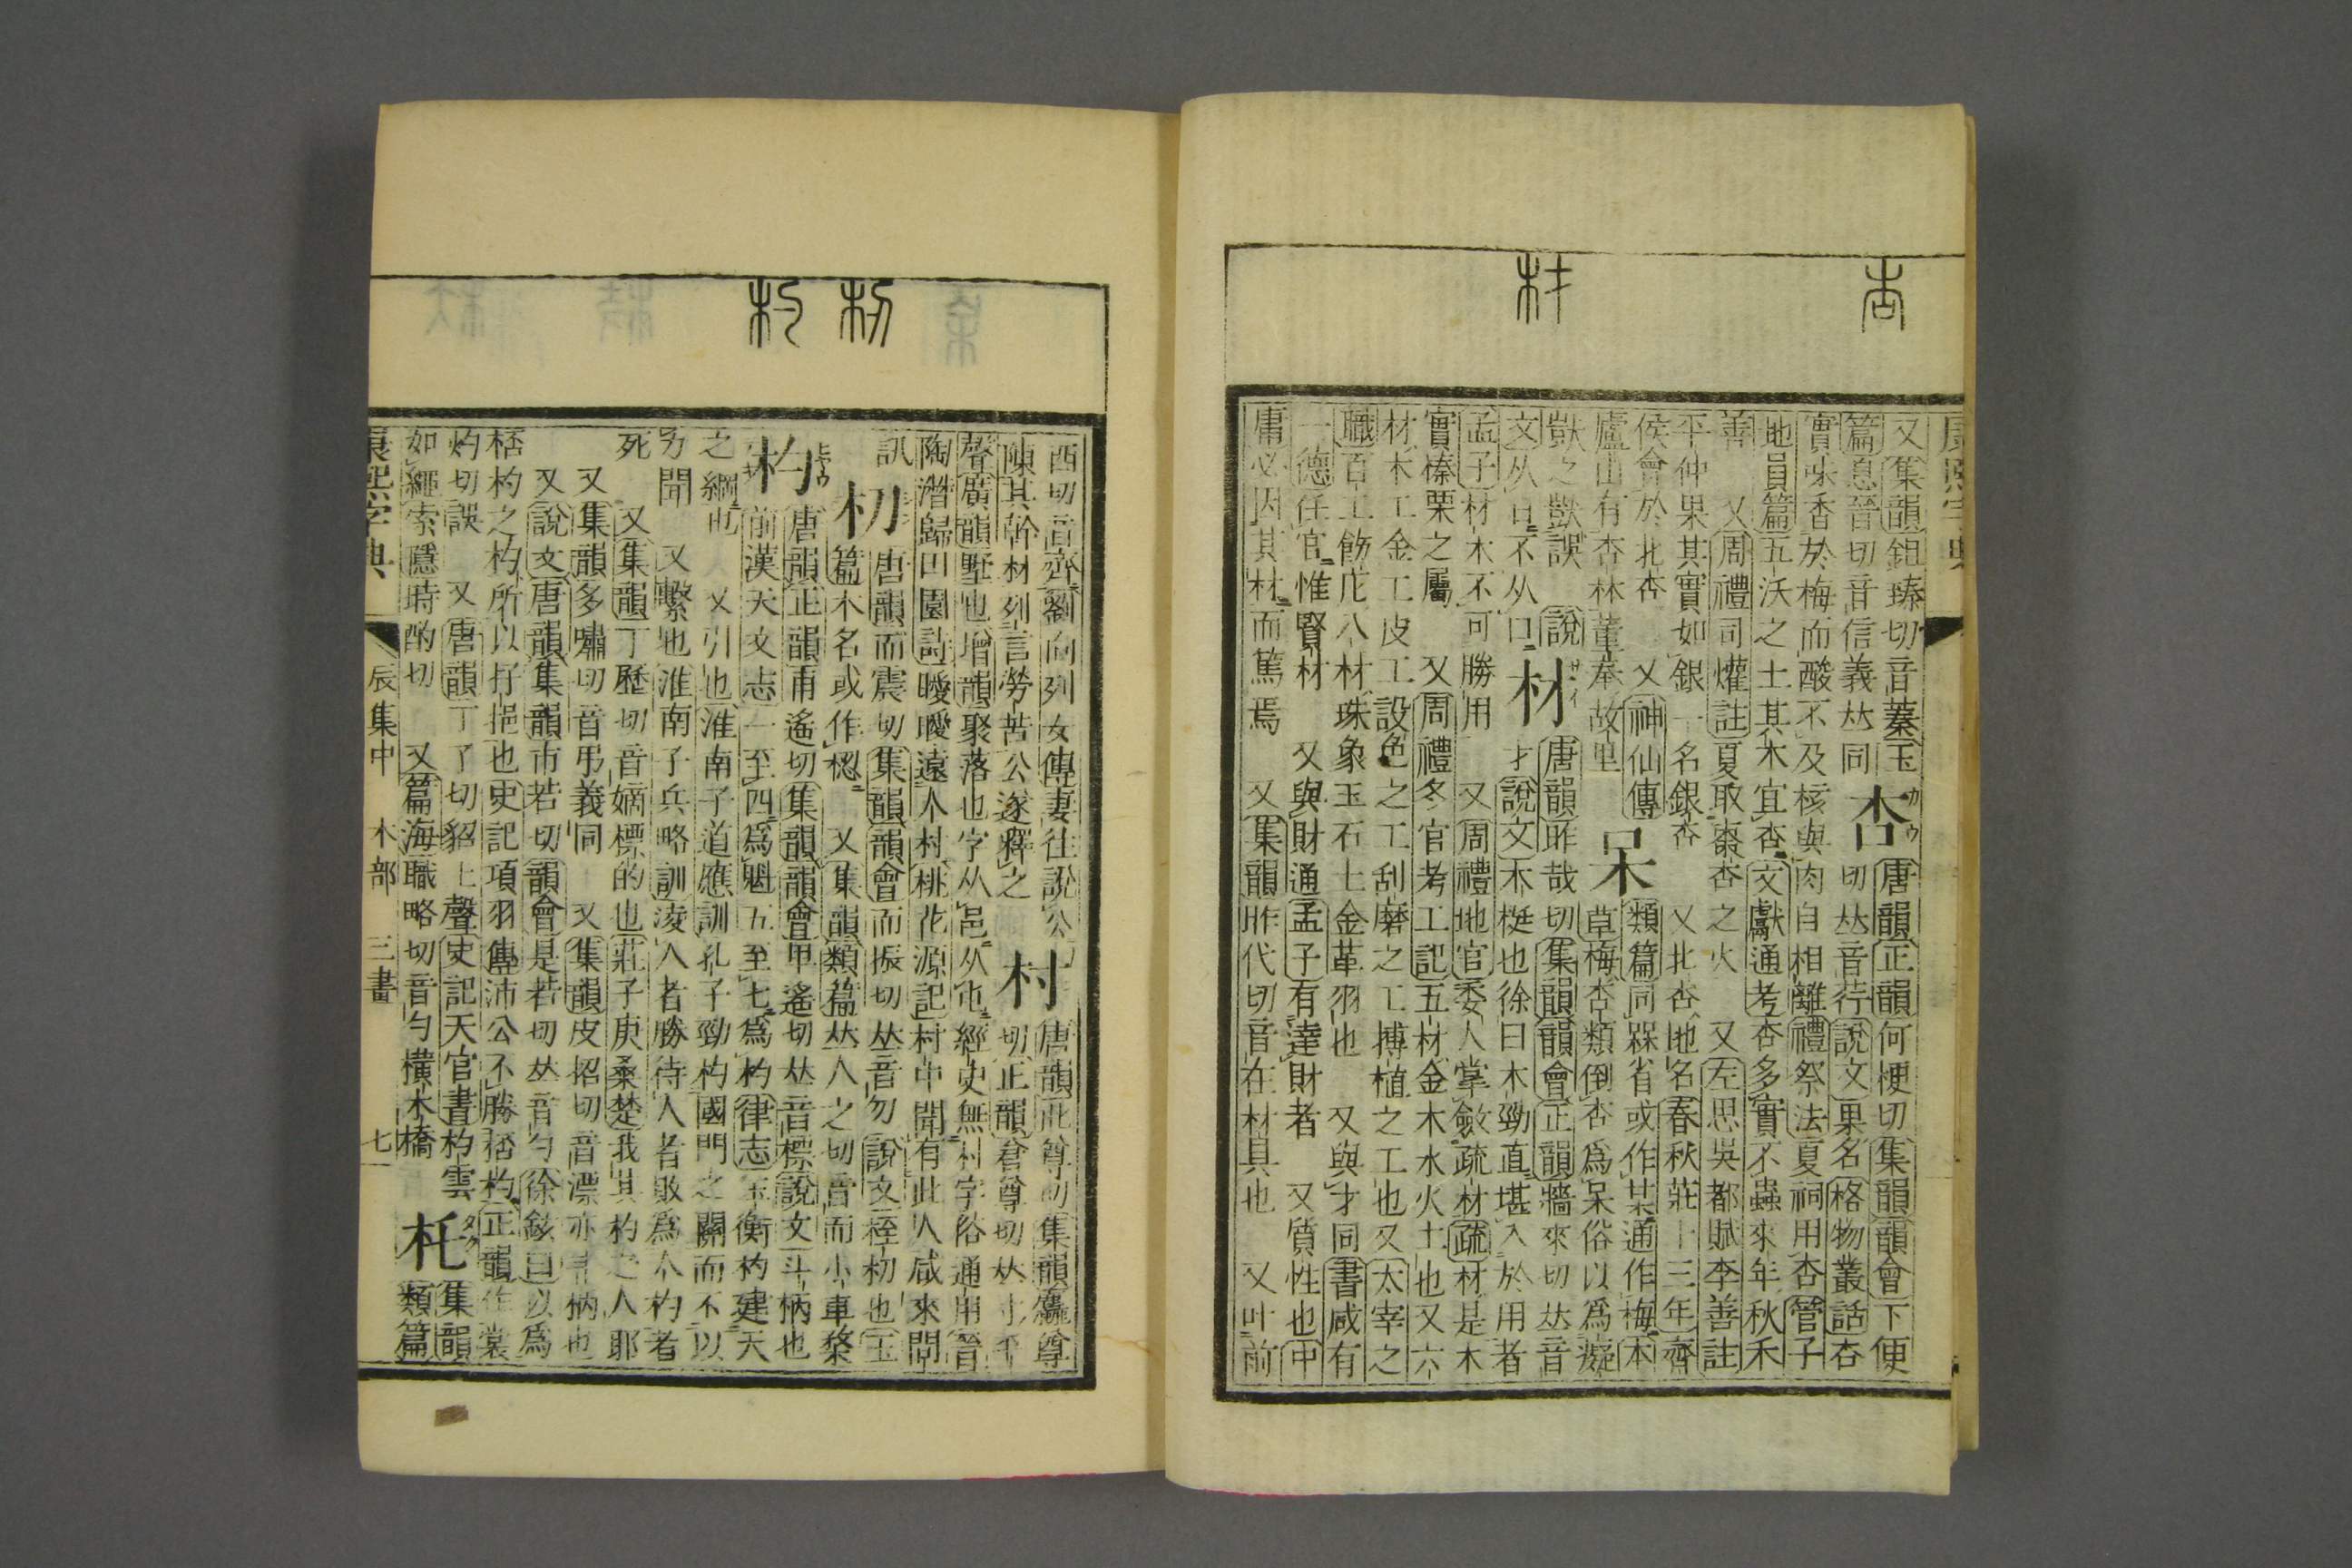 杏
材
又集韻鉏臻切音蓁玉
篇息晉切音信義𠀤同
杏
カウ
唐韻正韻何梗切集韻韻會下便
切𠀤音荇說文果名格物叢話杏
實味香於梅而酸不及核與肉自相離禮祭法夏祠用杏管子
地員篇五沃之土其木宜杏文獻通考杏多實不蟲來年秋禾
善 又周禮司爟註夏取棗杏之火 又左思吳都賦李善註
平仲果其實如銀一名銀杏 又北杏地名春秋莊十三年齊
侯會於北杏 又神仙傳
廬山有杏林董奉故里
呆
類篇同槑省或作某通作梅本
草梅杏類倒杏爲呆俗以爲癡
獃之獃誤 說
文从甘不从口
材
サイ
唐韻昨哉切集韻韻會正韻牆來切𠀤音
才說文木梃也徐曰木勁直堪入於用者
孟子材木不可勝用 又周禮地官委人掌斂疏材疏材是木
實榛栗之屬 又周禮冬官考工記五材金木水火土也又六
材木工金工皮工設色之工刮磨之工搏植之工也又太宰之
職百工飭庀八材珠象玉石土金革羽也 又與才同書咸有
一德任官惟賢材 又與財通孟子有達財者 又質性也中
庸必因其材而篤焉 又集韻昨代切音在材具也 又叶前
杒
杓
西切音齊劉向列女傳妻往說公
陳其幹材列言勞苦公遂釋之
村
唐韻此尊切集韻麤尊
切正韻倉尊切𠀤寸平
聲廣韻墅也增韻聚落也字从邑从屯經史無村字俗通用晉
陶潛歸田園詩曖曖遠人村桃花源記村中聞有此人咸來問
訊
杒
唐韻而震切集韻韻會而振切𠀤音刃說文桎杒也玉
篇木名或作梕 又集韻類篇𠀤人之切音而小車棽也
杓
唐韻正韻甫遙切集韻韻會甲遙切𠀤音標說文斗柄也
前漢天文志一至四爲魁五至七爲杓律志玉衡杓建天
之綱也 又引也淮南子道應訓孔子勁杓國門之關而不以
力聞 又繫也淮南子兵略訓淩人者勝待人者敗爲人杓者
死 又集韻丁歷切音嫡標的也莊子庚桑楚我其杓之人耶
又集韻多嘯切音弔義同 又集韻皮招切音漂亦斗柄也
又說文唐韻集韻市若切韻會是若切𠀤音勺徐鉉曰以爲
桮杓之杓所以抒挹也史記項羽傳沛公不勝桮杓正韻作裳
灼切誤 又唐韻丁了切貂上聲史記天官書杓雲
如繩索隱時酌切 又篇海職略切音勺橫木橋
杔
タク
集韻
類篇
康熙字典 辰集中 木部 三畫 七